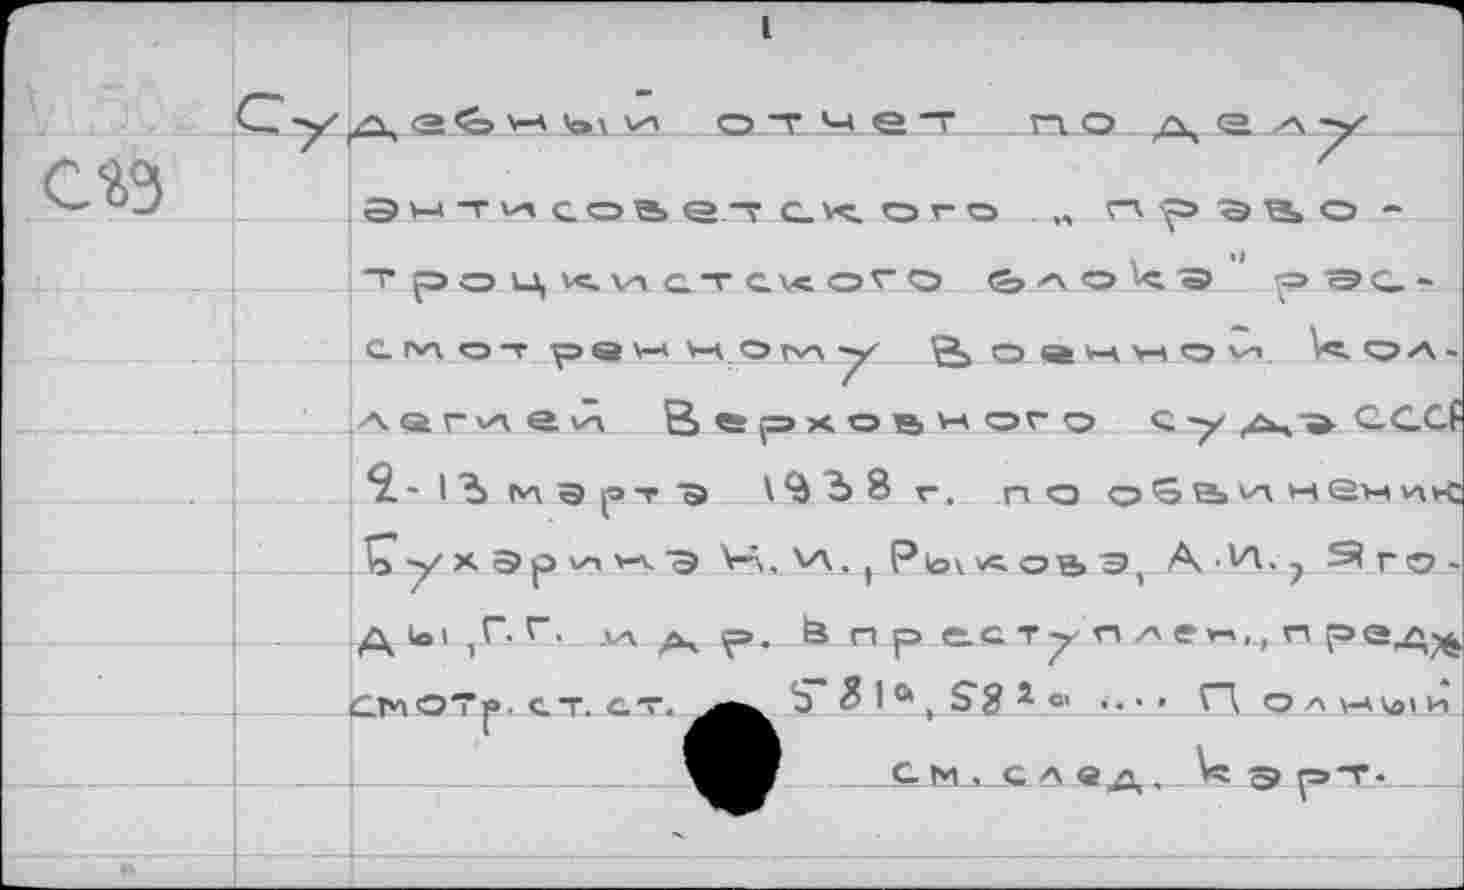 1
Судебный отчет по делу
С89
антисоветского „право-
троцкистского блока" рас-
смотренному Военной Кол-
легией Верховного суда СССР
2-13 марта 1938 г. по обвинению
Бухарина Н. И., Рыкова, А.И., Яго-
ды, Г.Г. и др. в преступлен., предус
смотр. ст. ст. 58¹ᵃ, 58² .... Полный
см. след. карт.